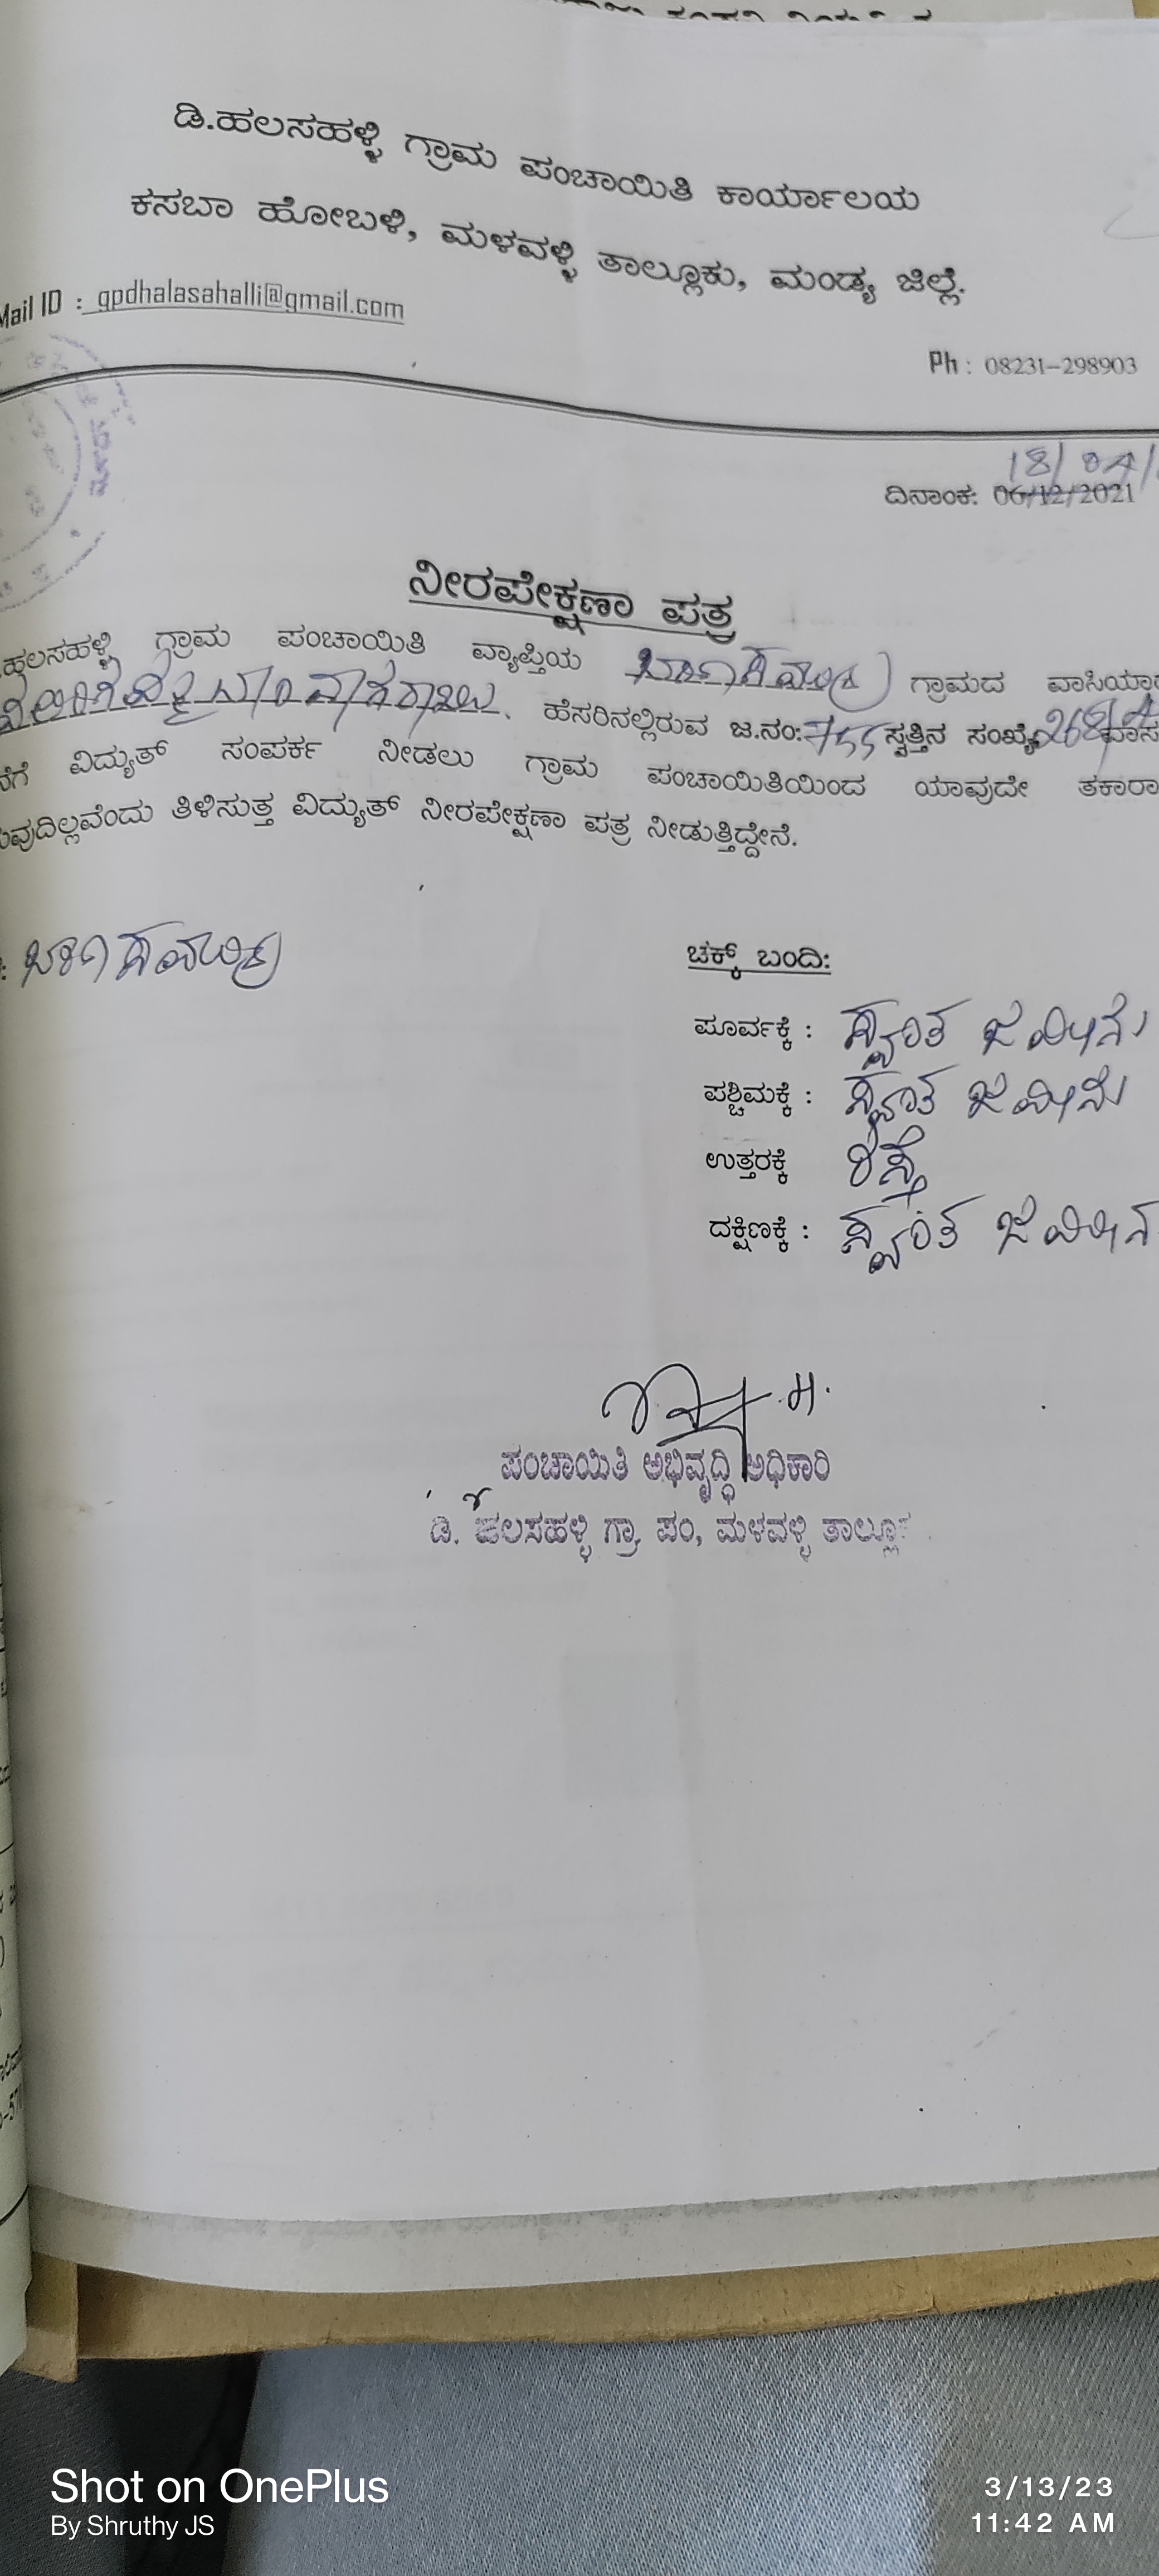 ಡಿ.ಹಲಸಹಳ್ಳಿ ಗ್ರಾಮ ಪಂಚಾಯಿತಿ ಕಾರ್ಯಾಲಯ
ಕಸಬಾ ಹೋಬಳಿ, ಮಳವಳ್ಳಿ ತಾಲ್ಲೂಕು, ಮಂಡ್ಯ ಜಿಲ್ಲೆ.
Mail ID : gpdhalasahalli@gmail.com
Ph : 08231-298903
18/04/
ದಿನಾಂಕ: 06/12/2021
ನೀರಪೇಕ್ಷಣಾ ಪತ್ರ
ಹಲಸಹಳ್ಳಿ ಗ್ರಾಮ ಪಂಚಾಯಿತಿ ವ್ಯಾಪ್ತಿಯ ಗ್ರಾಮದ
ಹೆಸರಿನಲ್ಲಿರುವ ಜ.ನಂ: 755 ಸ್ವತ್ತಿನ ಸಂಖ್ಯೆ
ವಿದ್ಯುತ್ ಸಂಪರ್ಕ ನೀಡಲು ಗ್ರಾಮ ಪಂಚಾಯಿತಿಯಿಂದ ಯಾವುದೇ
ತಿಳಿಸುತ್ತ ವಿದ್ಯುತ್ ನೀರಪೇಕ್ಷಣಾ ಪತ್ರ ನೀಡುತ್ತಿದ್ದೇನೆ.
ಚಕ್ಕ್ ಬಂದಿ:
ಪೂರ್ವಕ್ಕೆ : ಸ್ವಂತ ಜಮೀನು
ಪಶ್ಚಿಮಕ್ಕೆ : ಸ್ವಂತ ಜಮೀನು
ಉತ್ತರಕ್ಕೆ ರಸ್ತೆ
ದಕ್ಷಿಣಕ್ಕೆ : ಸ್ವಂತ
ಪಂಚಾಯಿತಿ ಅಭಿವೃದ್ಧಿ ಅಧಿಕಾರಿ
ಡಿ. ಹಲಸಹಳ್ಳಿ ಗ್ರಾ. ಪಂ, ಮಳವಳ್ಳಿ
Shot on OnePlus
By Shruthy JS
3/13/23
11:42 AM